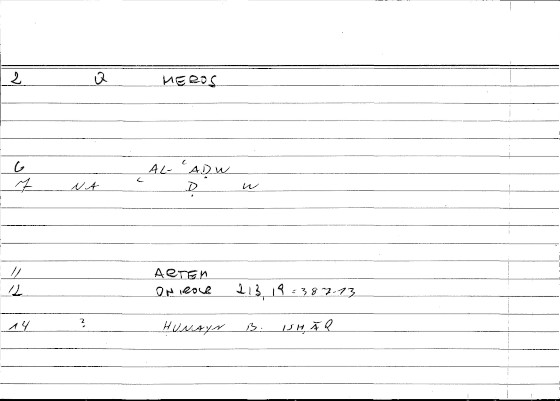 2 Q MEROS
6 AL-ʿAḌW
7 NA ʿ Ḍ W
11 ARTEM
12 ONIROCR 213,19=387.13
14 ? ḤUNAYN B. ISḤĀQ